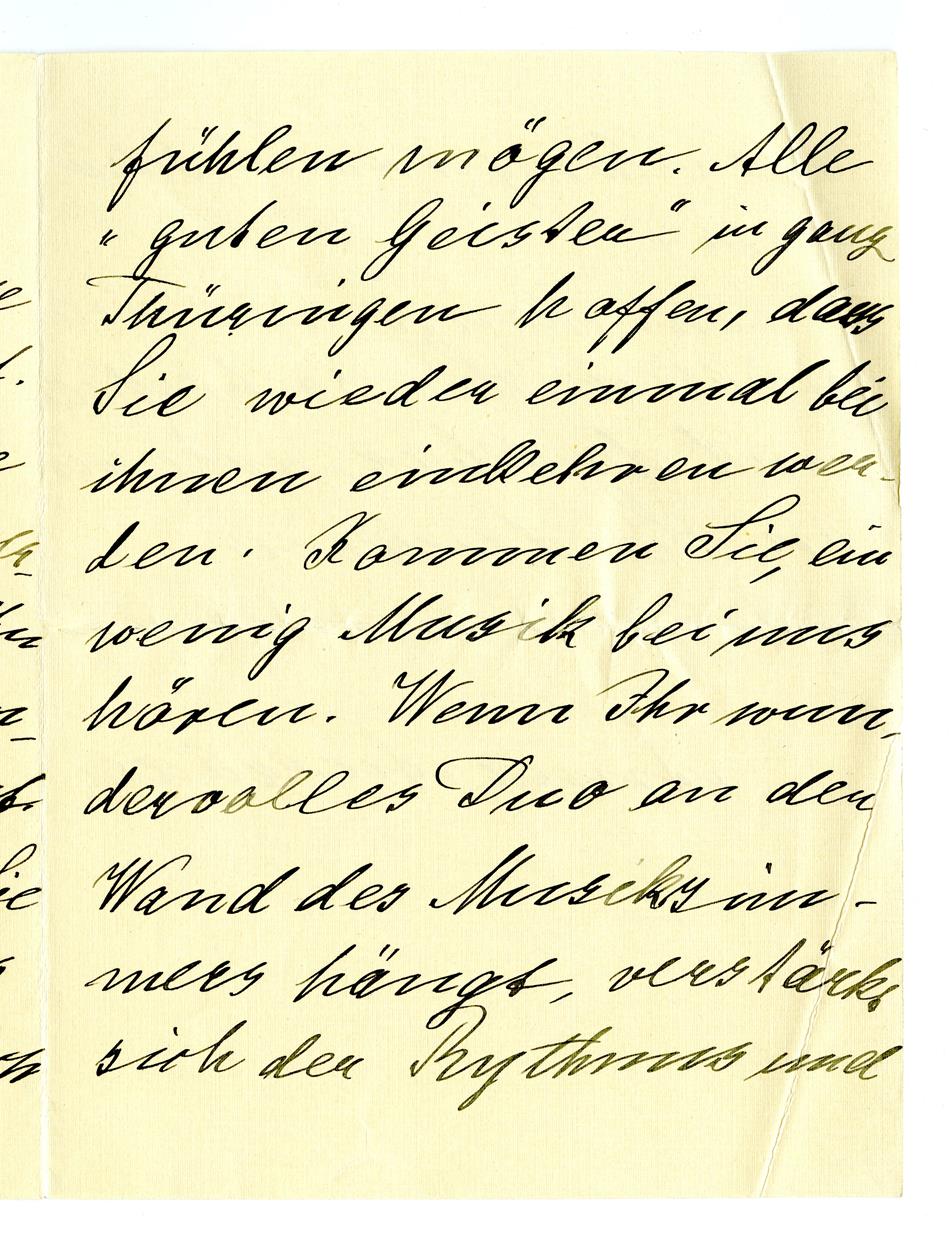 fühlen mögen. Alle
"guten Geister" in ganz
Thüringen hoffen, dass
Sie wieder einmal bei
ihnen einkehren wer-
den. Kommen Sie, ein
wenig Musik bei uns
hören. Wenn Ihr wun-
dervolles Duo an der
Wand des Musikzim-
mers hängt, verstärkt
sich der Rythmus und